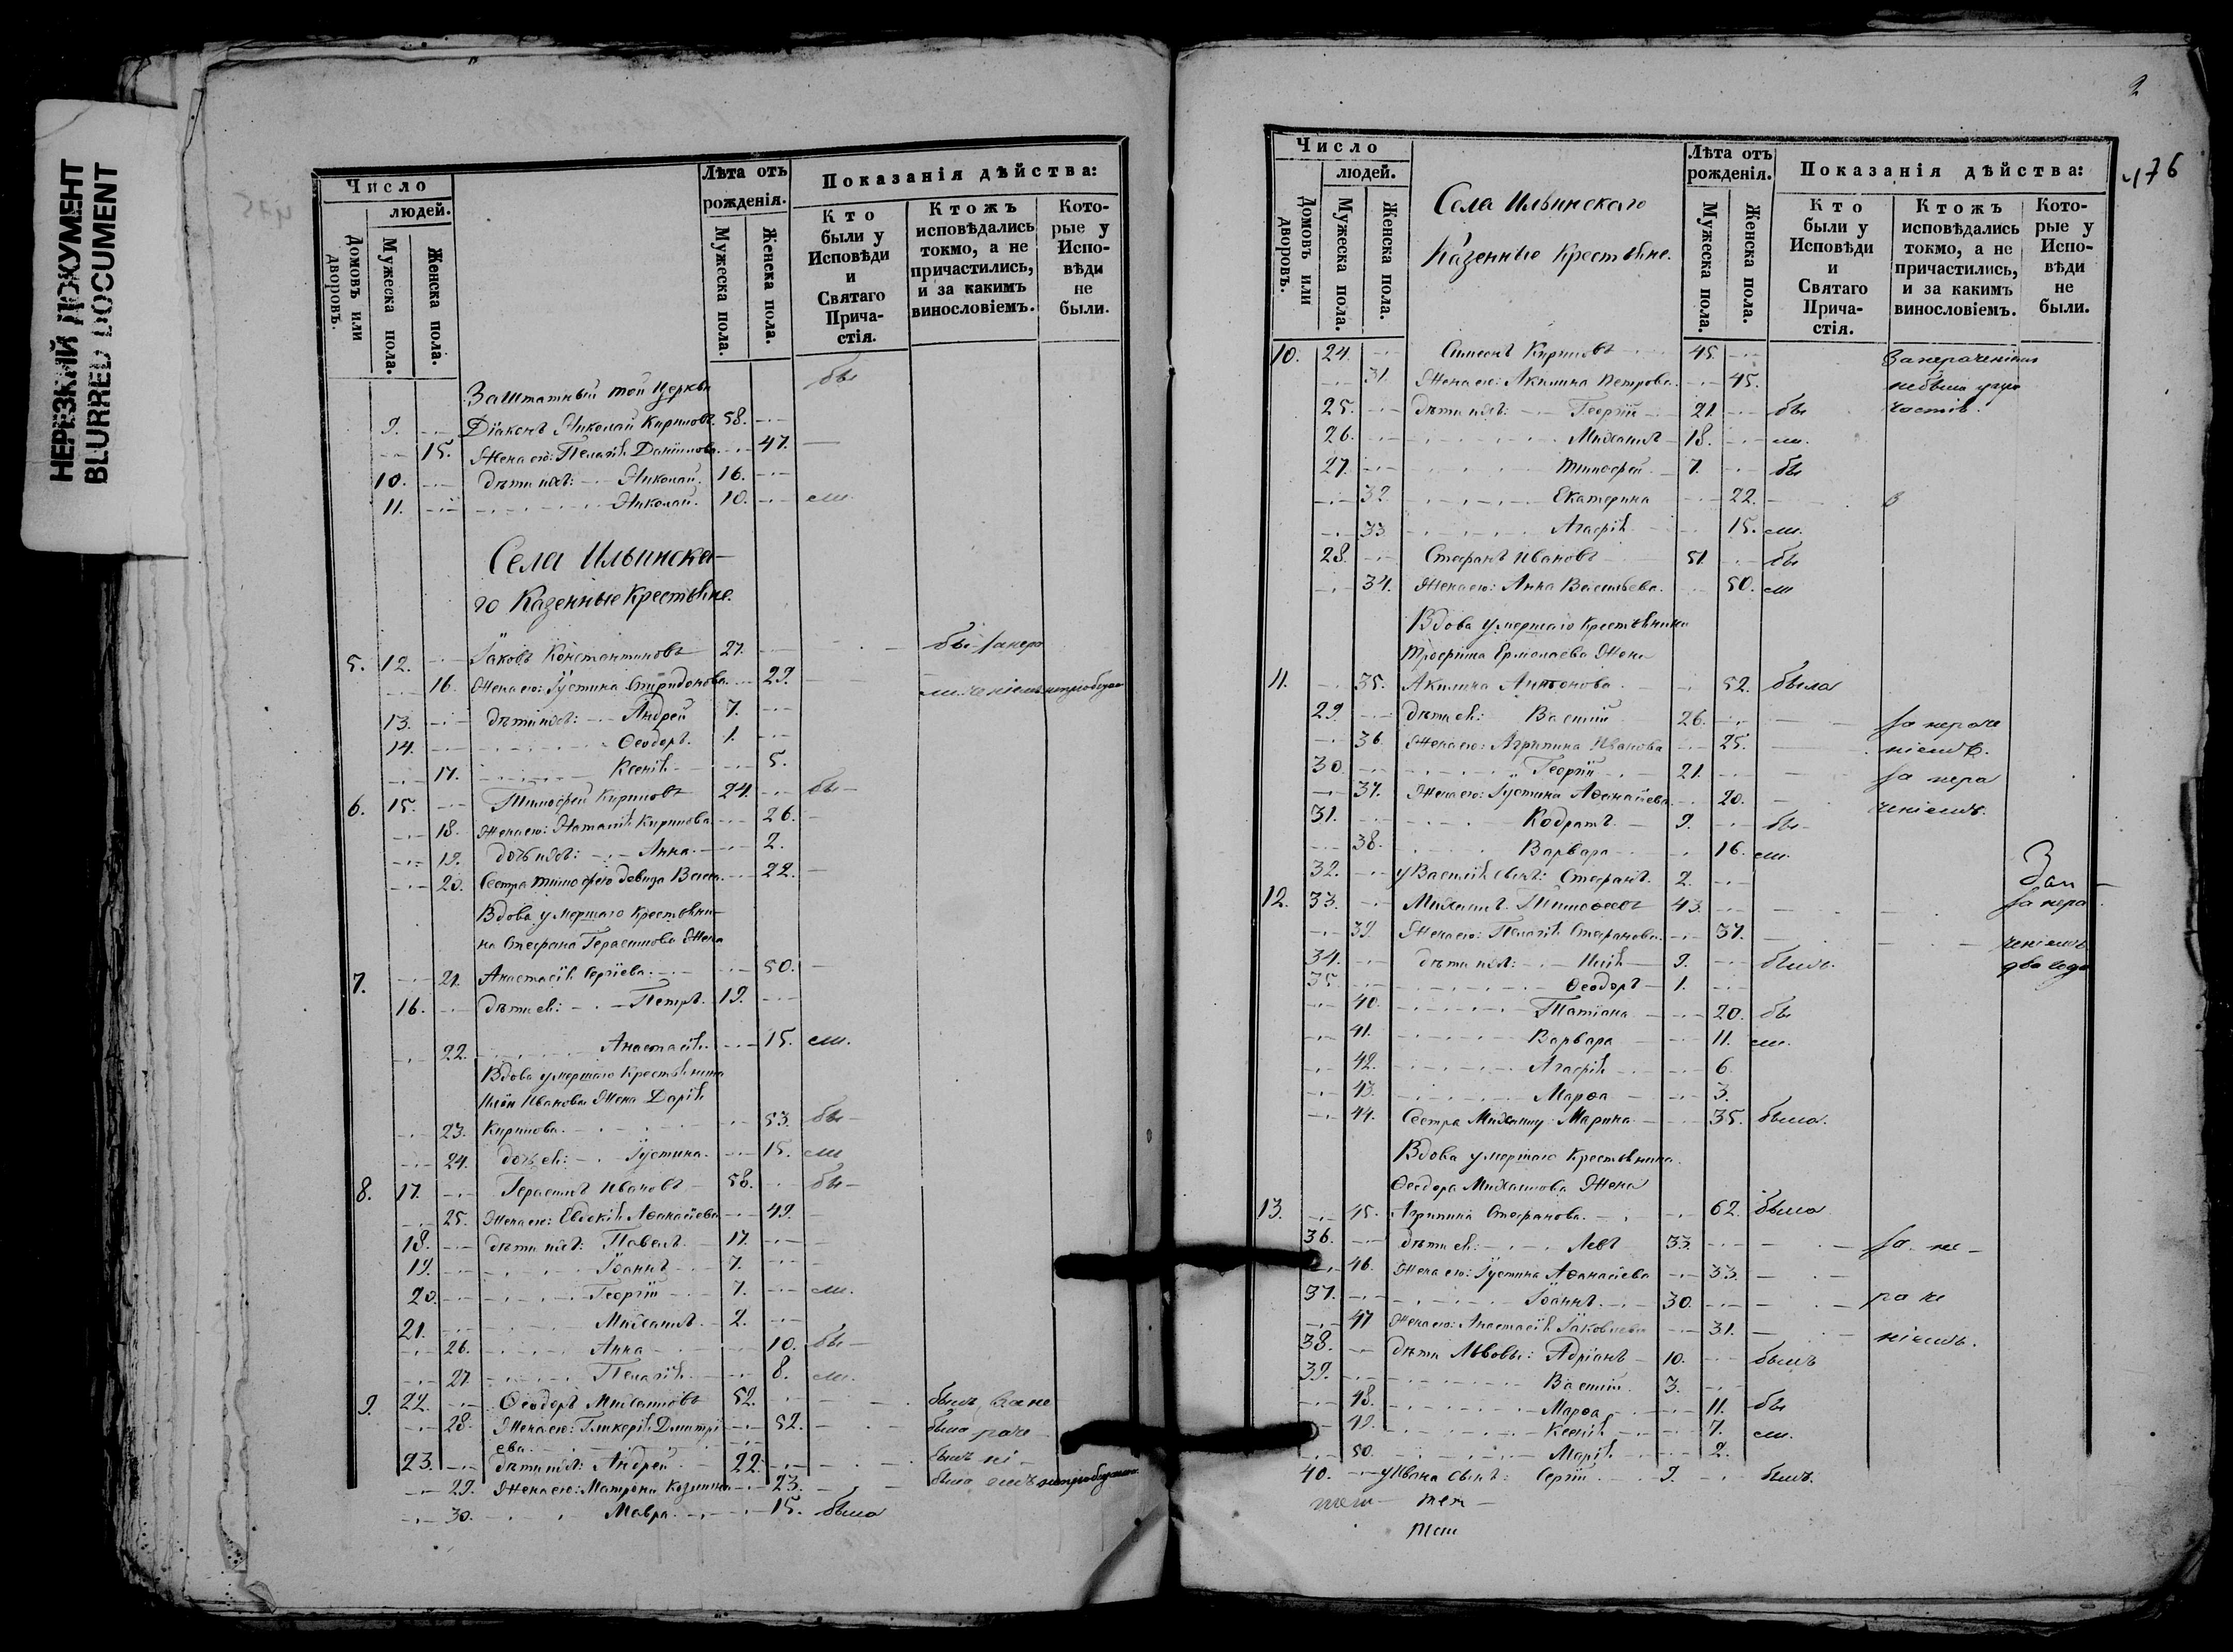 НЕРЕЗКИЙ ДОКУМЕНТ
BLURRED DOCUMENT
Число
людей.
Домовъ или дворовъ.
Мужеска пола.
Женска пола.
Лѣта отъ рожденія.
Мужеска пола.
Женска пола.
Показанія дѣйства:
Кто были у Исповѣди и Святаго Прича-стія.
Ктожъ исповѣдались токмо, а не причастились, и за какимъ винословіемъ.
Кото-рые у Испо-вѣди не были.
Заштатный той Церкви бы
9. Діаконъ Николай Кириловъ. 58.
15. Жена его: Пелагія Даніилова 47.
10. дѣти ихъ: Николай. 16.
11. Николай. 10. ли.
Села Ильинска-
го Казенные Крестьяне.
5. 12. Іаковъ Константиновъ 27. бы
16. Жена его: Іустина Спиридонова 29.
13. дѣти ихъ: Андрей 7.
14. Ѳеодоръ. 1.
17. Ксенія 5.
6. 15. Тимоѳей Кириловъ 24. бы
18. Жена его: Наталія Кирилова 26.
19. дочь ихъ: Анна. 2.
20. Сестра Тимоѳею девица 22.
Вдова умершаго Крестьяни-
на Стефана Герасимова Жена
7. 21. Анастасія Сергіева. 50.
16. дѣти ея: Петръ. 19.
22. Анастасія. 15. ли.
Вдова умершаго Крестьянина
Иліи Иванова Жена Дарія
23. Кирилова. 53. бы
24. дочь ея: Іустина. 15. ли
8. 17. Герасимъ Ивановъ 58. бы
25. Жена его: Евдокія Аѳанасіева 49.
18. дѣти ихъ: Павелъ. 17.
19. Іоаннъ 7.
20. Георгій 7. ли.
21. Михаилъ. 2.
26. Анна 10. бы
27. Пелагія. 8. ли.
9. 22. Ѳеодоръ Михаиловъ 52. былъ за не
28. Жена его: Гликерія Димитрі 52. была раче
ева.
23. дѣти ихъ: Андрей 22. былъ ні
29. Жена его: Матрона Козмина 23. была емъ
30. Мавра. 15. была
2
476
Число
людей.
Домовъ или дворовъ.
Мужеска пола.
Женска пола.
Села Ильинскаго
Казенные Крестьяне.
Лѣта отъ рожденія.
Мужеска пола.
Женска пола.
Показанія дѣйства:
Кто были у Исповѣди и Святаго Прича-стія.
Ктожъ исповѣдались токмо, а не причастились, и за какимъ винословіемъ.
Кото-рые у Испо-вѣди не были.
10. 24. Симеонъ Кириловъ 45. За нераченіемъ
31. Жена его: Акилина Петрова 45. не были
25. дѣти ихъ: Георгій 21. бы
26. Михаилъ 18. ли.
27. Тимоѳей 7. бы
32. Екатерина 22.
33. Агафія 15. ли.
28. Стефанъ Ивановъ 51. бы
34. Жена его: Анна Васильева. 50. ли
Вдова умершаго Крестьянина
Трофима Ермолаева Жена
11. 35. Акилина Антонова 52. была
29. дѣти ея: Василій 26. за нераче
36. Жена его: Агрипина Иванова 25. ніемъ.
30. Георгій 21. за нера
37. Жена его: Іустина Аѳанасіева 20. ченіемъ.
31. Кодратъ. 9. бы
38. Варвара 16. ли.
32. у Василія сынъ: Стефанъ. 2.
За
12. 33. Михаилъ Тимоѳеевъ 43. за нера
39. Жена его: Пелагія Стефанова 37. ченіемъ
34. дѣти ихъ: Илія 9. былъ. два года
35. Ѳеодоръ 1.
40. Татіана 20. бы
41. Варвара 11. ли.
42. Агафія 6.
43. Марѳа 3.
44. Сестра Михаилу Марина 35. была.
Вдова умершаго Крестьянина
Ѳеодора Михаилова Жена
13. 45. Агрипина Стефанова. 62. была
36. дѣти ея: Левъ 33. за не
46. Жена его: Іустина Аѳанасіева 33.
37. Іоаннъ. 30. ра че
47 Жена его: Анастасія Іаковлева 31. ніемъ.
38. дѣти Львовы: Адріанъ 10. былъ
39. Василій. 3.
48. Марѳа 11. бы
49. Ксенія 7. ли.
50. Марія 2.
40. у Ивана сынъ: Сергій 9. былъ.